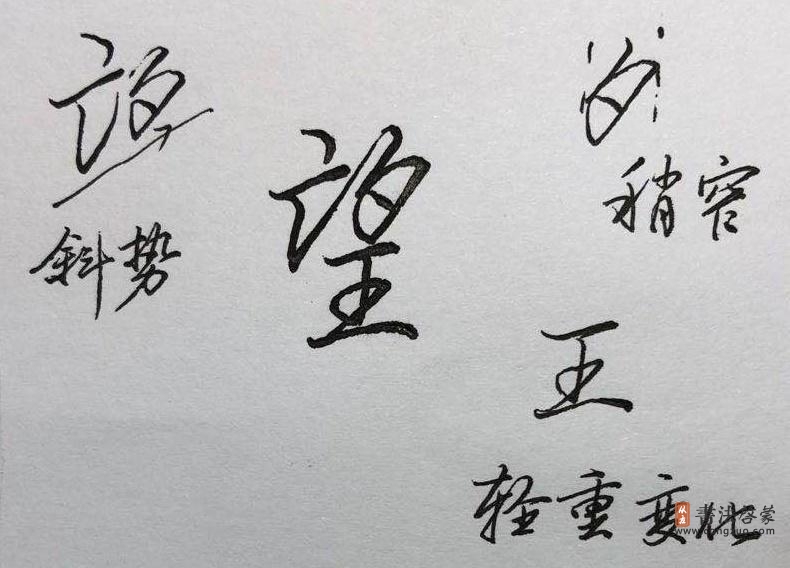 望
斜势
稍窄
王
轻重变化
書法啓蒙